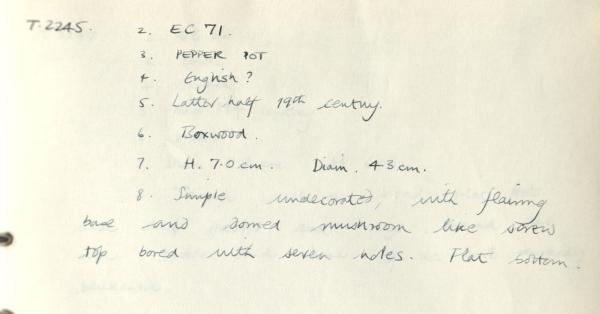 T.2245. 2. EC 71.
3. PEPPER POT
4. English?
5. Latter half 19th century.
6. Boxwood.
7. H. 7.0 cm. Diam. 4.3 cm.
8. Simple undecorated, with flaring
base and domed mushroom like screw
top bored with seven holes. Flat bottom.